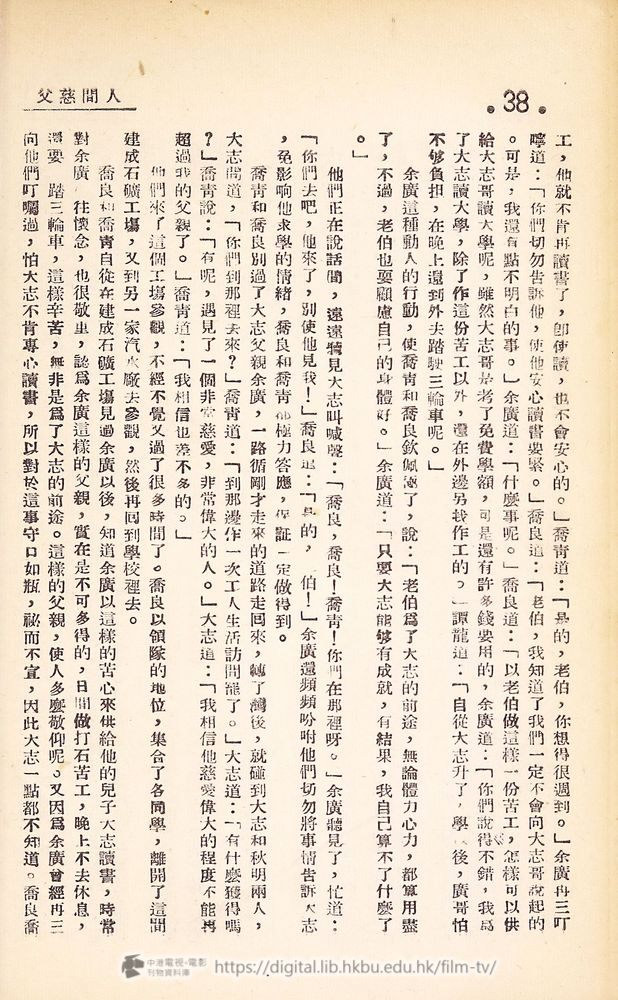 人間慈父
38
工，他就不肯再讀書了，卽使讀，也不會安心的。」喬靑道：「是的，老伯，你想得很週到。」余廣再三叮
嚀道：「你們切勿告訴他，使他安心讀書要緊。」喬良道：「老伯，我知道了我們一定不會向大志哥說起的
。可是，我還有點不明白的事。」余廣道：「什麽事呢。」喬良道：「以老伯做這樣一份苦工，怎樣可以供
給大志哥讀大學呢，雖然大志哥是考了免費學額，可是還有許多錢要用的，余廣道：「你們說得不錯，我爲
了大志讀大學，除了作這份苦工以外，還在外邊另找作工的。」譚龍道：「自從大志升了 學 後，廣哥怕
不够負担，在晚上還到外去踏駛三輪車呢。」
余廣這種動人的行動，使喬靑和喬良欽佩極了，說：「老伯爲了大志的前途，無論體力心力，都算用盡
了，不過，老伯也要顧慮自己的身體好。」余廣道：「只要大志能够有成就，有結果，我自己算不了什麽了
。」
他們正在說話間，遠遠聽見大志叫喊聲：「喬良，喬良！喬靑！你們在那裡呀。」余廣聽見了，忙道：
「你們去吧，他來了，別使他見我！」喬良道：「是的， 伯！」余廣還頻頻吩咐他們切勿將事情告訴大志
，免影响他求學的情緖，喬良和喬靑都極力答應，保証一定做得到。
喬靑和喬良別過了大志父親余廣，一路循剛才走來的道路走回來，轉了灣後，就碰到大志和秋明兩人，
大志問道，「你們到那裡去來？」喬靑道：「到那邊作一次工人生活訪問罷了。」大志道：「有什麽獲得嗎
？」喬靑說：「有呢，遇見了一個非常慈愛，非常偉大的人。」大志道：「我相信他慈愛偉大的程度不能再
超過我的父親了。」喬靑道：「我相信也差不多的。」
他們來了這個工塲參觀，不經不覺又過了很多時間了。喬良以領隊的地位，集合了各同學，離開了這間
建成石礦工塲，又到另一家汽水廠去參觀，然後再回到學校裡去。
喬良和喬靑自從在建成石礦工塲見過余廣以後，知道余廣以這樣的苦心來供給他的兒子大志讀書，時常
對余廣 往懷念，也很敬重，認爲余廣這樣的父親，實在是不可多得的，日間做打石苦工，晚上不去休息，
還要 踏三輪車，這樣辛苦，無非是爲了大志的前途。這樣的父親，使人多麽敬仰呢。又因爲余廣曾經再三
向他們叮囑過，怕大志不肯專心讀書，所以對於這事守口如瓶，祕而不宣，因此大志一點都不知道。喬良喬
中港電視·電影
刊物資料庫
https://digital.lib.hkbu.edu.hk/film-tv/